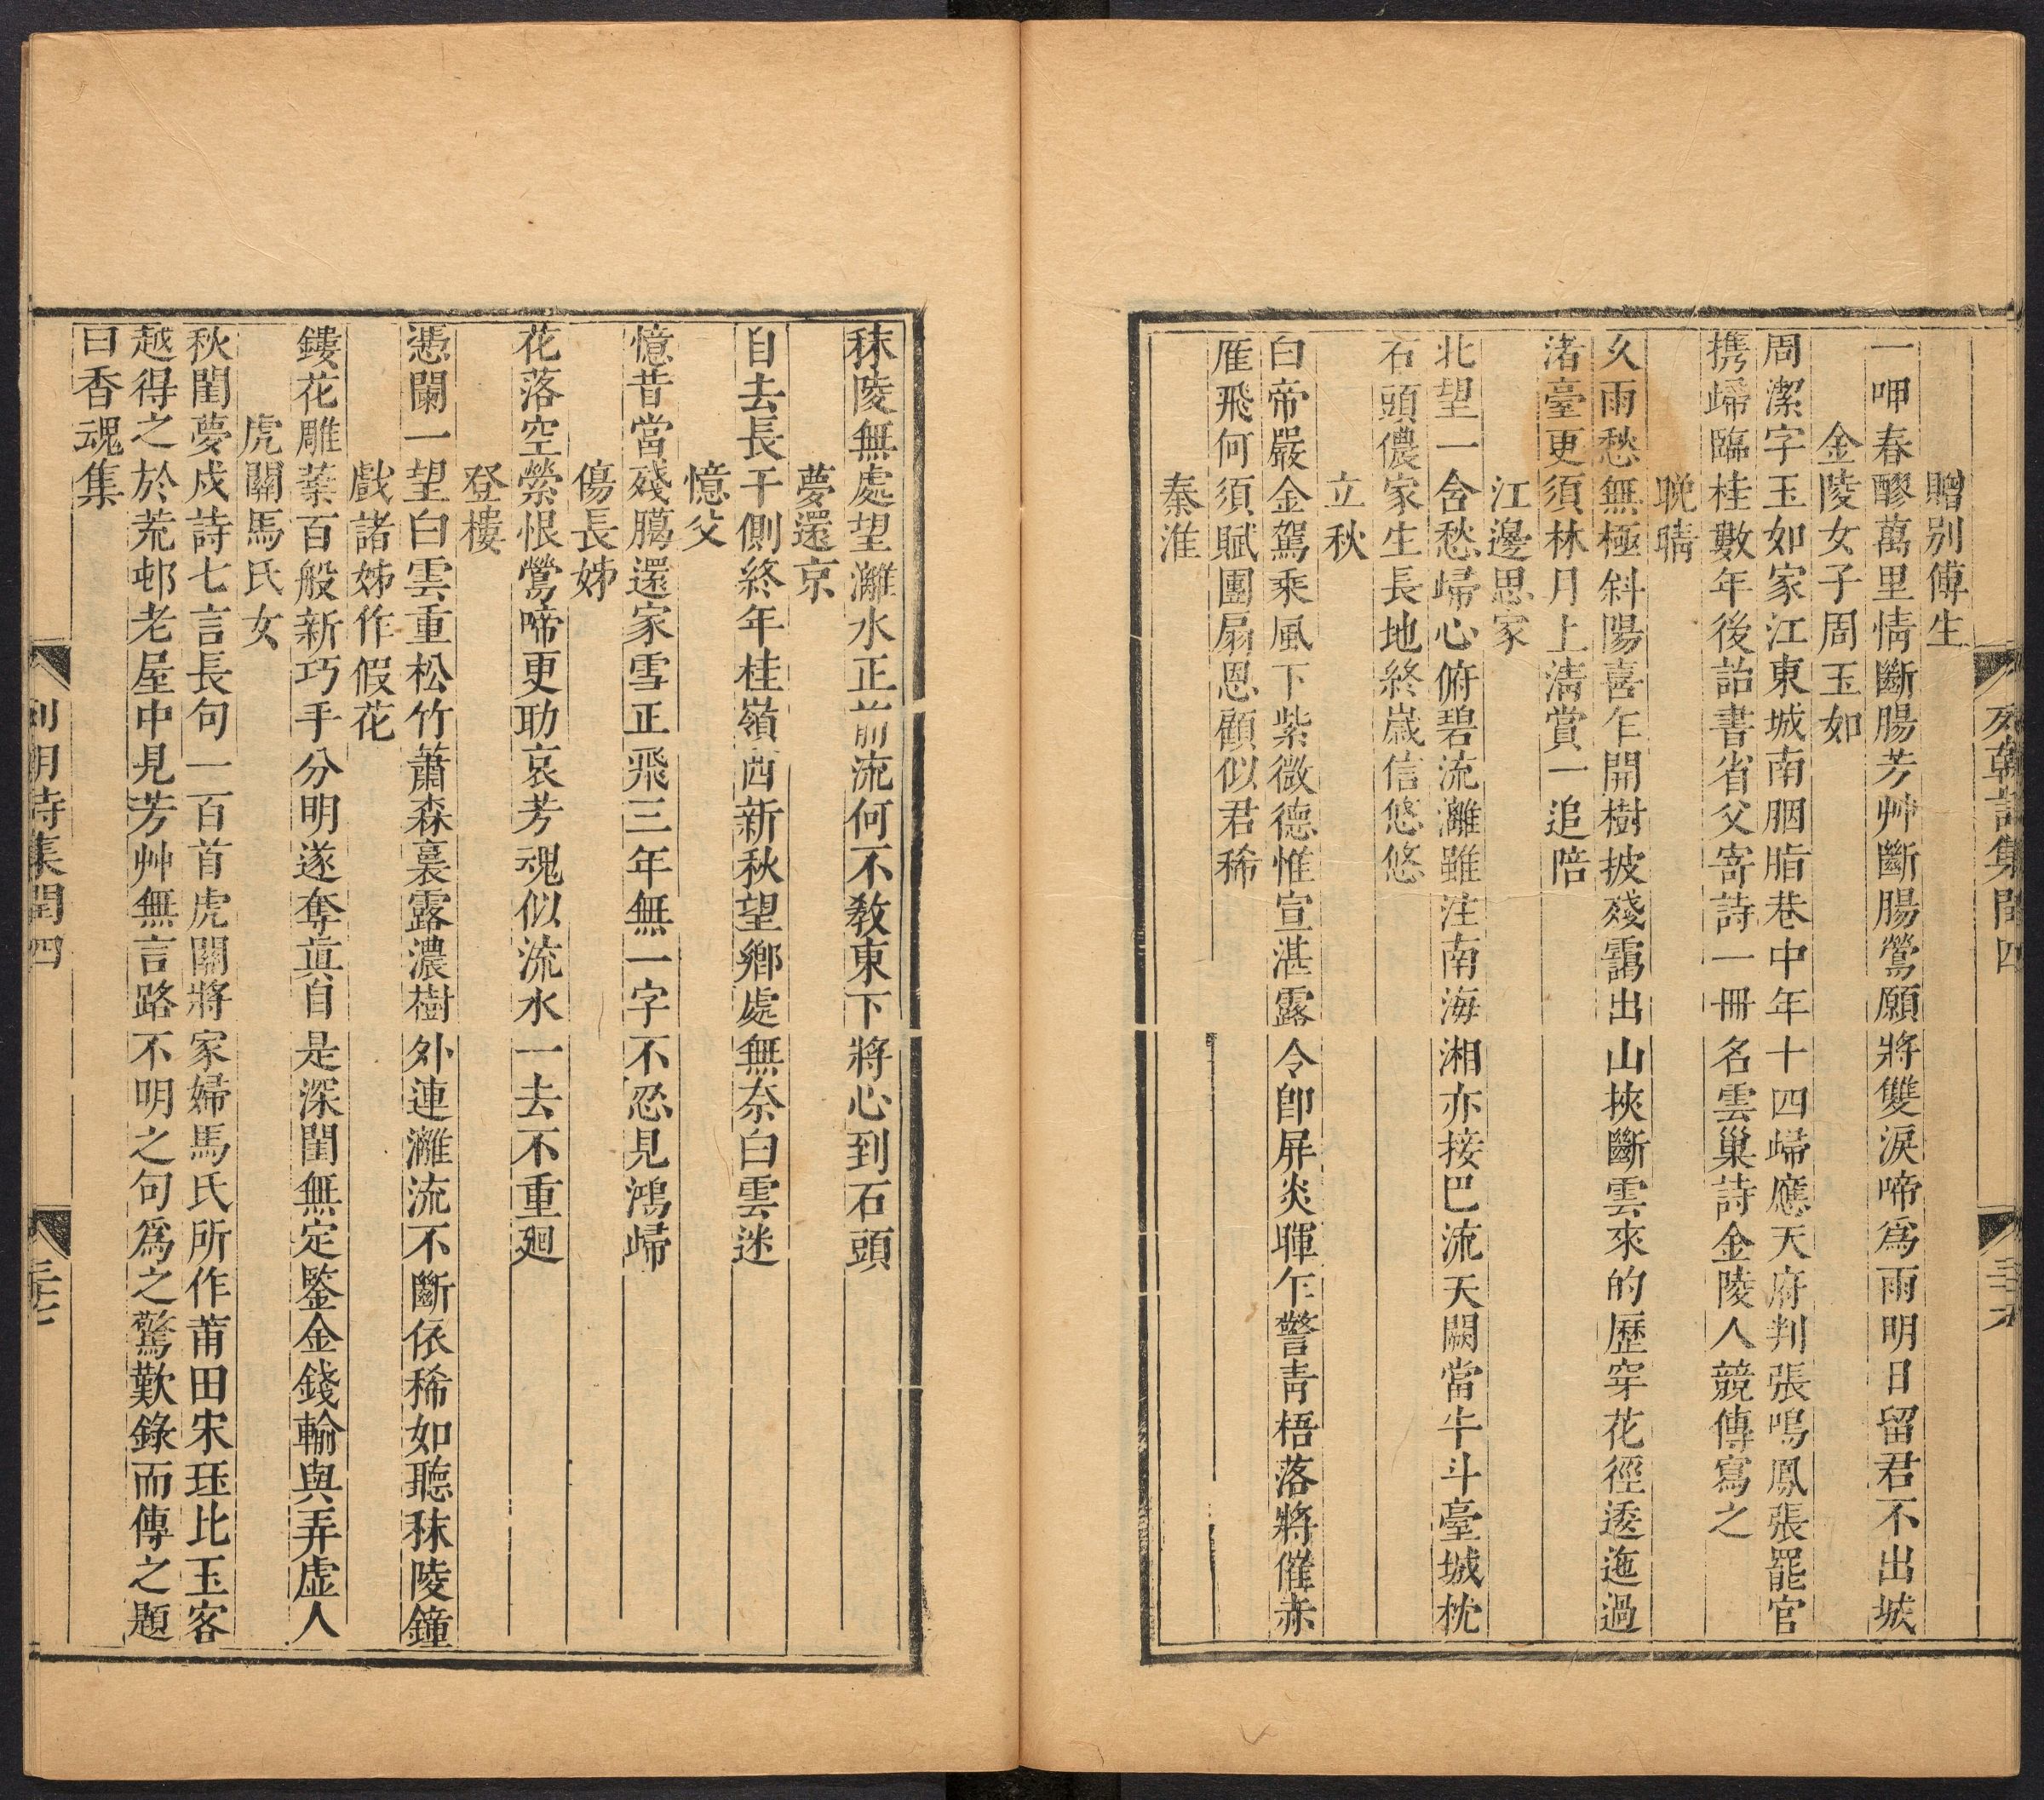 列朝詩集閏四
三十六
贈别傅生
一呷春醪萬里情斷腸芳艸斷腸鶯願將雙淚啼爲雨明日留君不出城
金陵女子周玉如
周潔字玉如家江東城南胭脂巷中年十四歸應天府判張鳴鳳張罷官
携歸臨桂數年後詒書省父寄詩一冊名雲巢詩金陵人競傳寫之
晚晴
久雨愁無極斜陽喜乍開樹披殘靄出山挾斷雲來的歷穿花徑逶迤過
渚臺更須林月上清賞一追陪
江邊思家
北望一含愁歸心俯碧流灕雖注南海湘亦接巴流天闕當牛斗臺城枕
石頭儂家生長地終歲信悠悠
立秋
白帝嚴金駕乘風下紫微德惟宣湛露令卽屏炎暉乍警青梧落將催赤
雁飛何須賦團扇恩顧似君稀
秦淮
秣陵無處望灕水正前流何不教東下將心到石頭
夢還京
自去長干側終年桂嶺西新秋望鄉處無奈白雲迷
憶父
憶昔當殘臈還家雪正飛三年無一字不忍見鴻歸
傷長姊
花落空縈恨鶯啼更助哀芳魂似流水一去不重廻
登樓
憑闌一望白雲重松竹蕭森裏露濃樹外連灕流不斷依稀如聽秣陵鐘
戲諸姊作假花
鏤花雕蘂百般新巧手分明遂奪眞自是深閨無定鑒金錢輸與弄虛人
虎關馬氏女
秋閨夢戍詩七言長句一百首虎關將家婦馬氏所作莆田宋珏比玉客
越得之於荒邨老屋中見芳艸無言路不明之句爲之驚歎錄而傳之題
曰香魂集
列朝詩集閏四
三十七